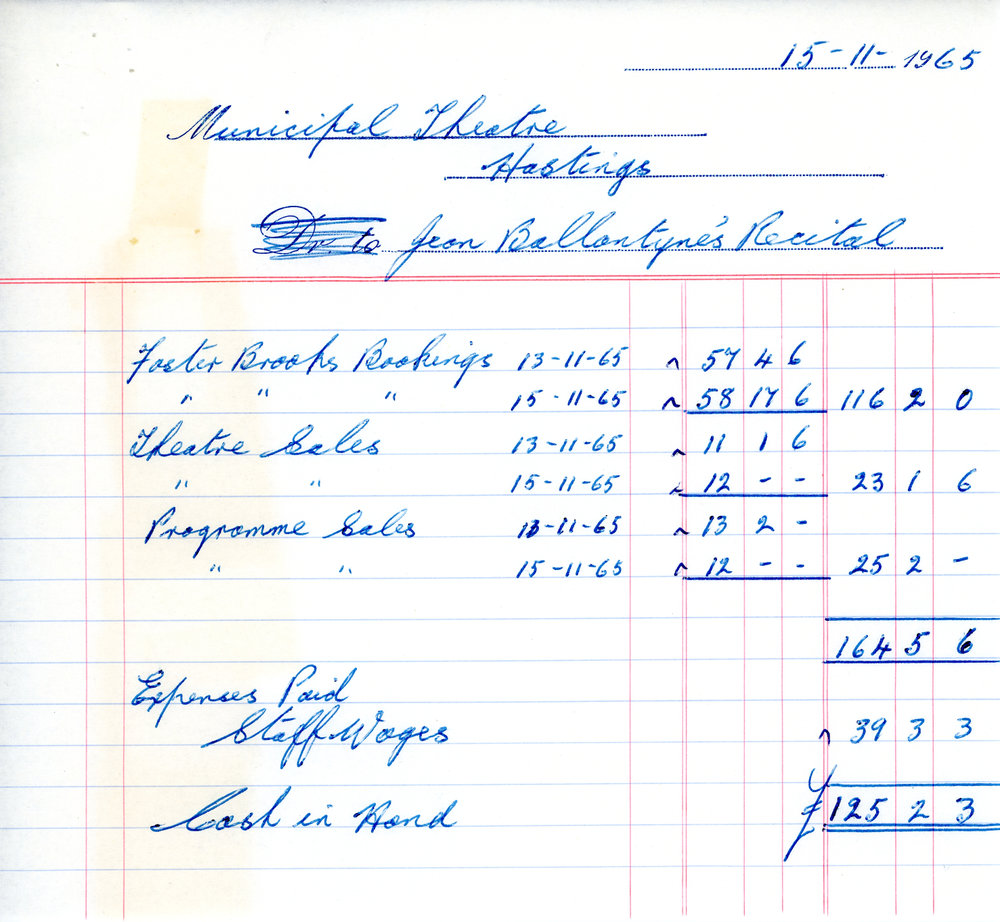 15-11-1965
Municipal Theatre
Hastings
Dr to Jean Ballantyne's Recital
Foster Brooks Bookings 13-11-65 57 4 6
" " " 15-11-65 58 17 6 116 2 0
Theatre Sales 13-11-65 11 1 6
" " 15-11-65 12 - - 23 1 6
Programme Sales 13-11-65 13 2 -
" " 15-11-65 12 - - 25 2 -
164 5 6
Expenses Paid
Staff Wages 39 3 3
Cash in Hand £125 2 3